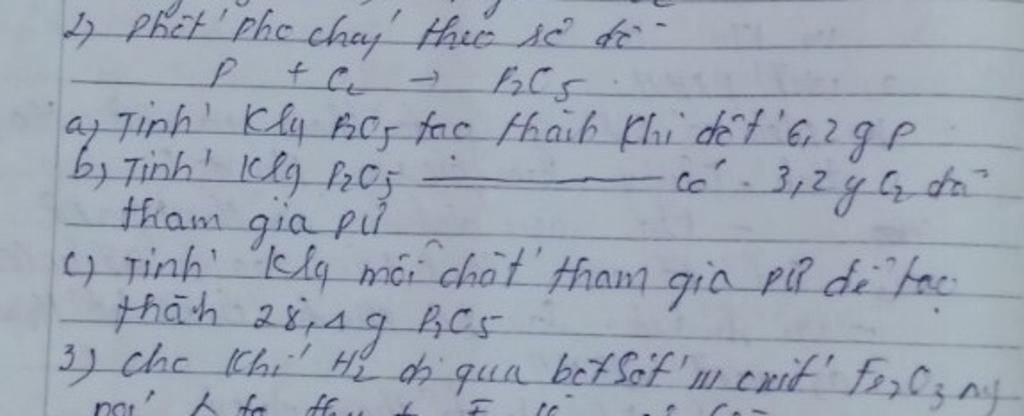 2) Phốt pho cháy theo sơ đồ
P + O2 → P2O5
a) Tính Klg P2O5 tạo thành khi đốt 6,2 g P
b) Tính Klg P2O5 ——— có 3,2 g O2 đã
tham gia pứ
c) Tính Klg mỗi chất tham gia pứ để tạo
thành 28,4 g P2O5
3) Cho khí H2 đi qua bột Sắt III oxit Fe2O3